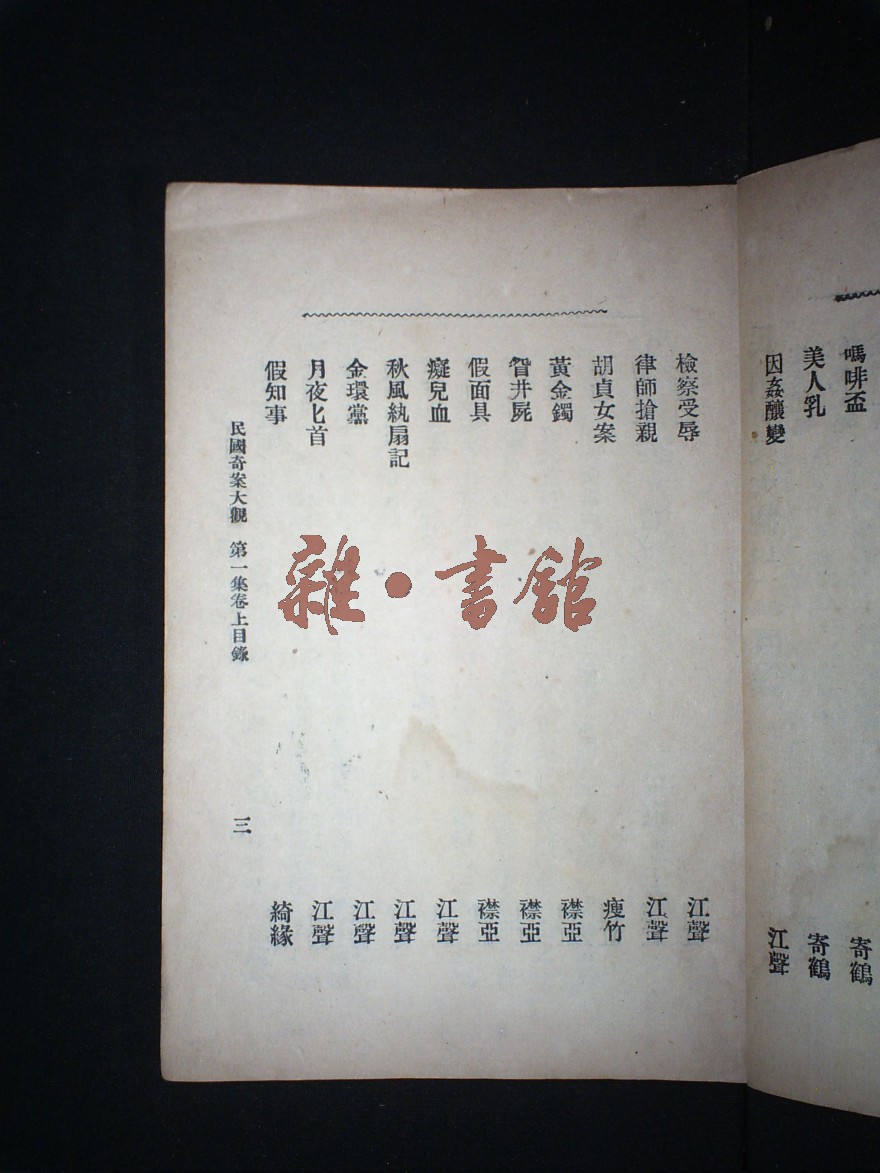 嗎啡盃 寄鶴
美人乳 寄鶴
因姦釀變 江聲
檢察受辱 江聲
律師搶親 江聲
胡貞女案 瘦竹
黃金鐲 襟亞
眢井屍 襟亞
假面具 襟亞
癡兒血 江聲
秋風紈扇記 江聲
金環黨 江聲
月夜匕首 江聲
假知事 綺緣
民國奇案大觀 第一集卷上目錄 三
雜·書館